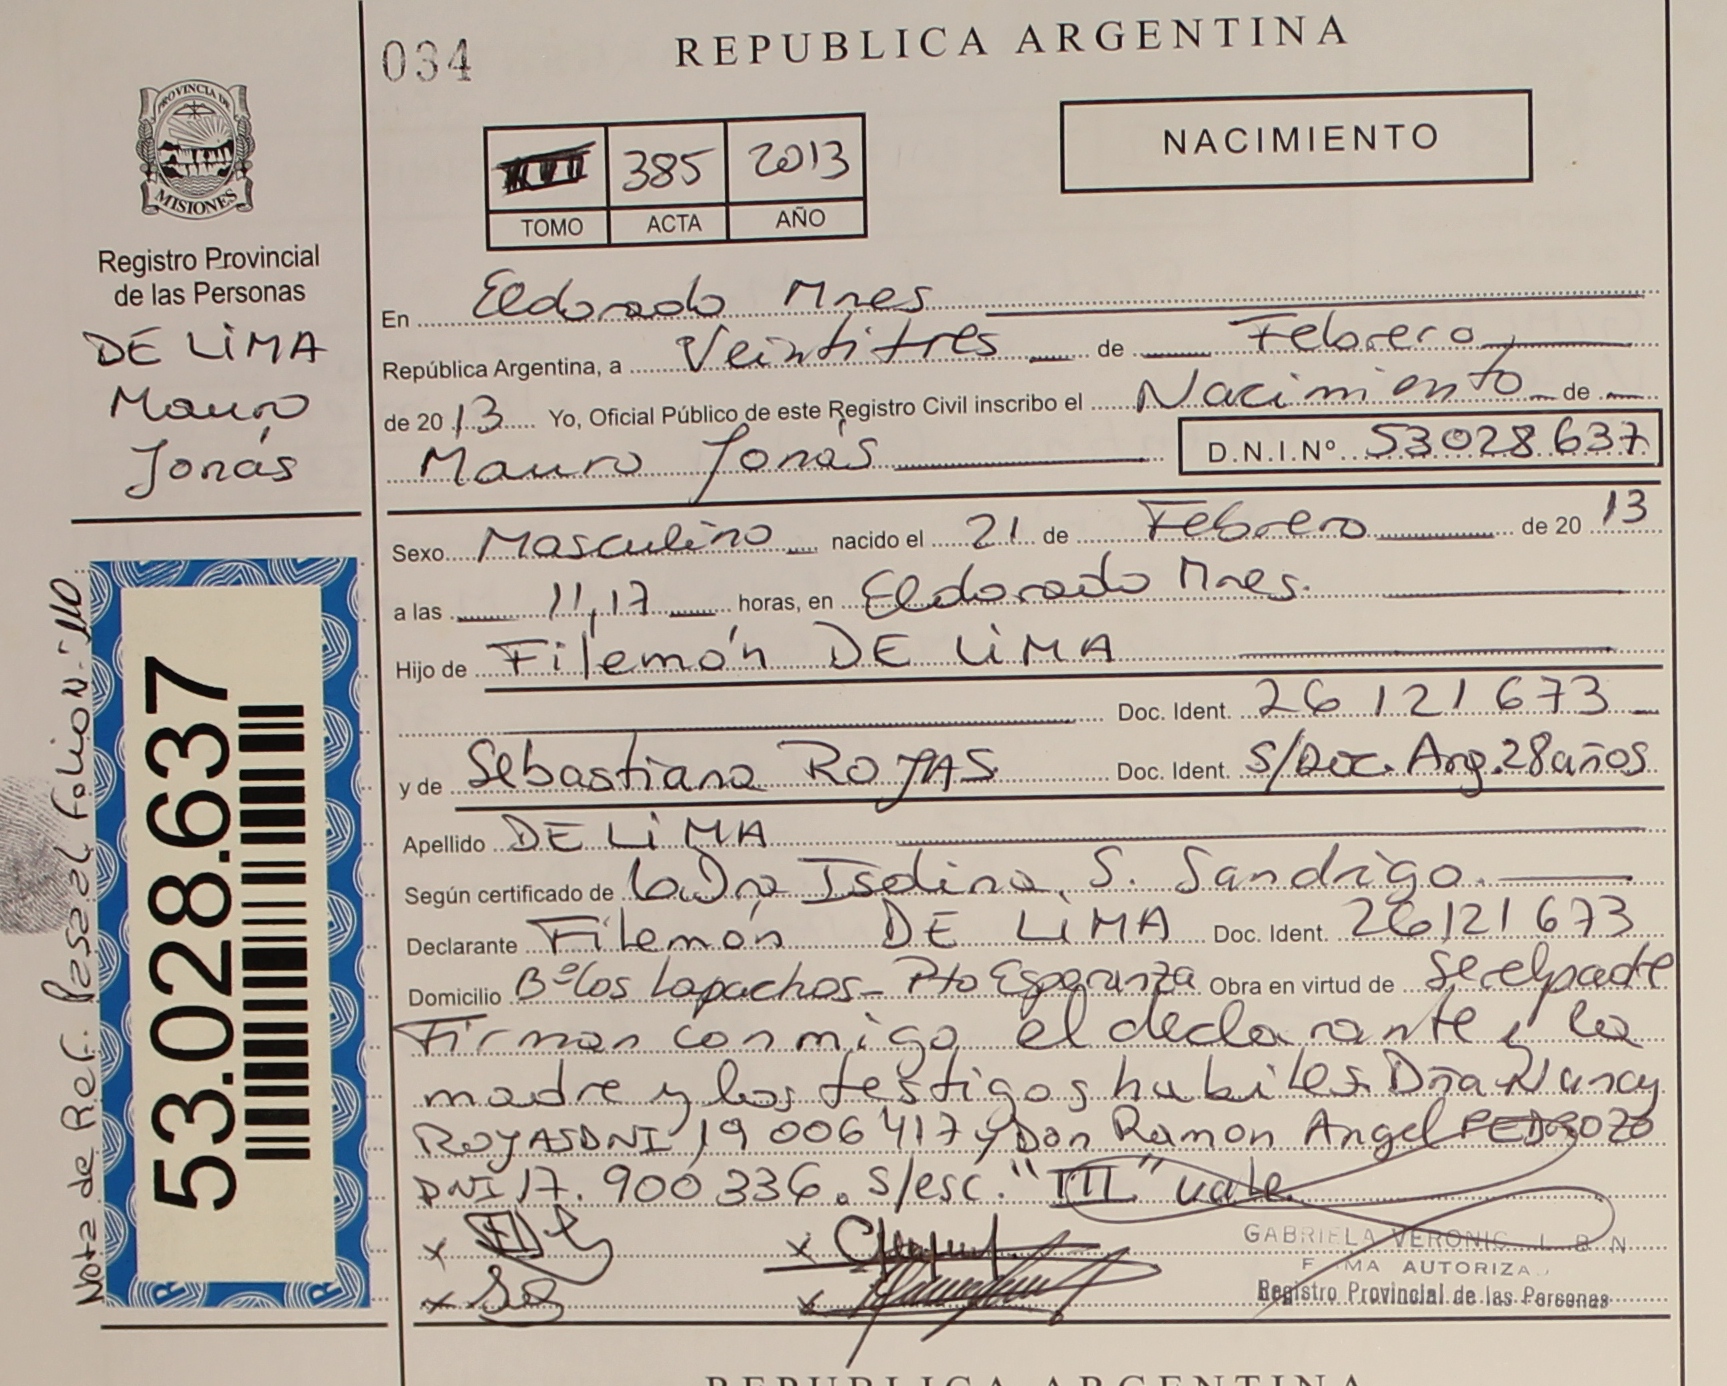 034
REPUBLICA ARGENTINA
NACIMIENTO
III 385 2013
TOMO ACTA AÑO
PROVINCIA DE
MISIONES
Registro Provincial
de las Personas
DE LiMA
Mauro
Jonás
Nota de Ref. Pasa al Folio N° 110
53.028.637
En Eldorado Mnes
República Argentina, a Veintitres de Febrero
de 2013 Yo, Oficial Público de este Registro Civil inscribo el Nacimiento de
Mauro Jonás D.N.I.Nº 53028.637
Sexo Masculino nacido el 21 de Febrero de 2013
a las 11,17 horas, en Eldorado Mnes.
Hijo de Filemón DE LiMA
Doc. Ident. 26 121 673
y de Sebastiana ROJAS Doc. Ident. S/Doc. Arg. 28 años
Apellido DE LiMA
Según certificado de la Dra Isolina S. Sandrigo.
Declarante Filemón DE LiMA Doc. Ident. 26121673
Domicilio Bº los Lapachos - Pto Esperanza Obra en virtud de Ser el padre
Firman conmigo el declarante, la
madre y los testigos habiles Dña Nancy
ROYAS DNI 19 006 417 y Don Ramon Angel PEDROZO
DNI 17.900 336. s/esc. "III" vale.
GABRIELA
Registro Provincial de las Personas
REPUBLICA ARGENTINA